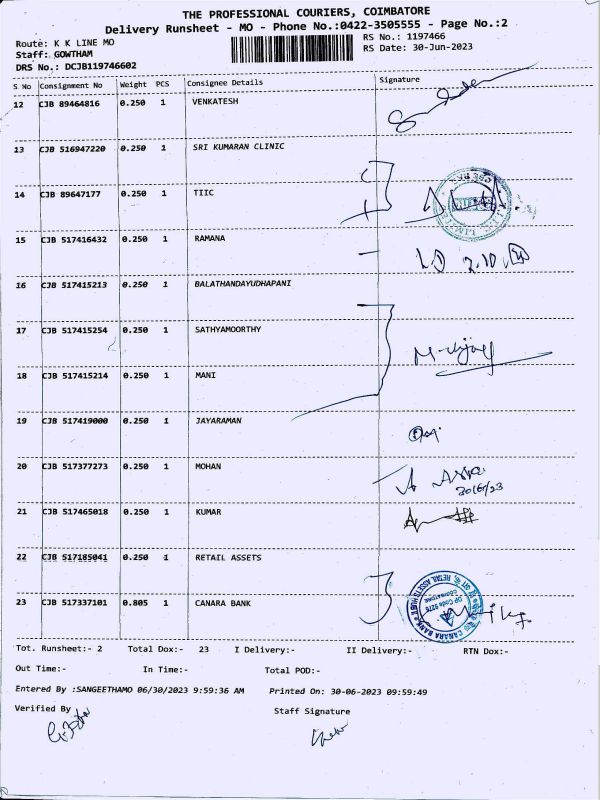 THE PROFESSIONAL COURIERS, COIMBATORE
Delivery Runsheet - MO - Phone No.:0422-3505555 - Page No.:2
Route: K K LINE MO
RS No.: 1197466
Staff: GOWTHAM
RS Date: 30-Jun-2023
DRS No.: DCJB119746602
S No Consignment No Weight PCS Consignee Details Signature
12 CJB 89464816 0.250 1 VENKATESH
13 CJB 516947220 0.250 1 SRI KUMARAN CLINIC
14 CJB 89647177 0.250 1 TIIC
15 CJB 517416432 0.250 1 RAMANA
16 CJB 517415213 0.250 1 BALATHANDAYUDHAPANI
17 CJB 517415254 0.250 1 SATHYAMOORTHY
18 CJB 517415214 0.250 1 MANI
19 CJB 517419000 0.250 1 JAYARAMAN
20 CJB 517377273 0.250 1 MOHAN
30/6/23
21 CJB 517465018 0.250 1 KUMAR
22 CJB 517185041 0.250 1 RETAIL ASSETS
23 CJB 517337101 0.805 1 CANARA BANK
CANARA BANK
RETAIL ASSETS HUB
DP Code 9276
COIMBATORE
Tot. Runsheet:- 2 Total Dox:- 23 I Delivery:- II Delivery:- RTN Dox:-
Out Time:- In Time:- Total POD:-
Entered By :SANGEETHAMO 06/30/2023 9:59:36 AM Printed On: 30-06-2023 09:59:49
Verified By Staff Signature